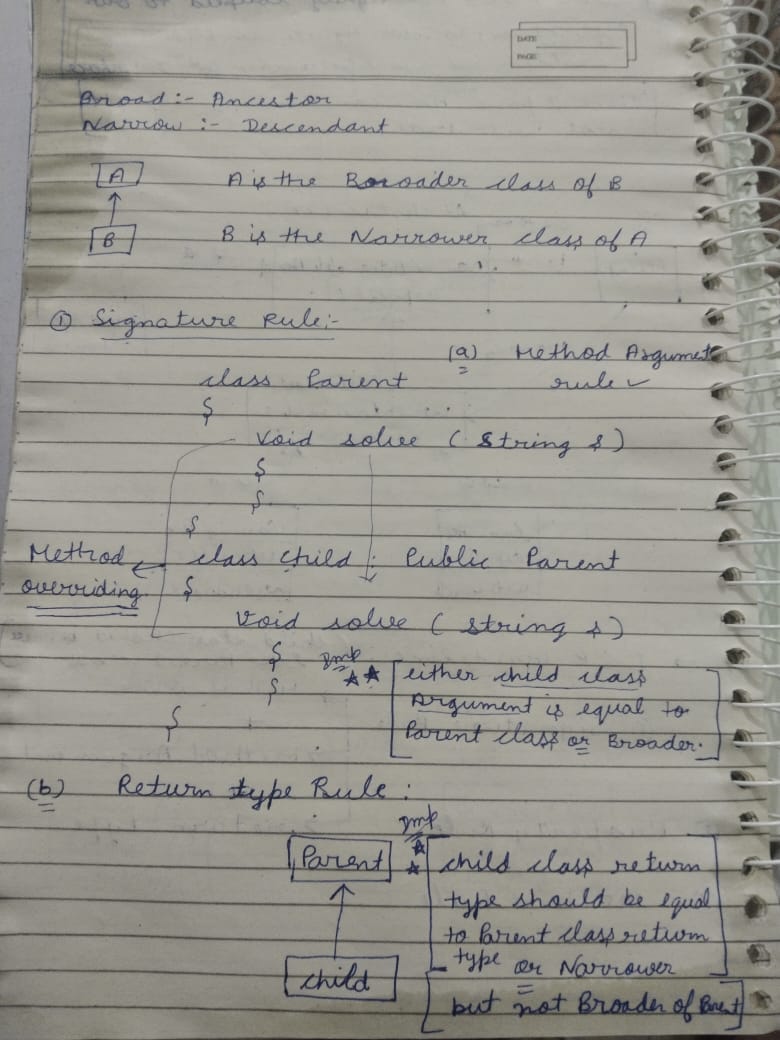 DATE
PAGE
Broad :- Ancestor
Narrow :- Descendant
A
A is the Broader class of B
B
B is the Narrower class of A
① Signature Rule:-
(a) Method Argument
rule ✓
class Parent
{
void solve ( string s )
{
}
}
class child : Public Parent
Method
overriding.
{
void solve ( string s )
{
}
}
Imp
★★
[either child class
Argument is equal to
Parent class or Broader.]
(b) Return type Rule :
Parent
child
Imp
★
★
[child class return
type should be equal
to Parent class return
type or Narrower
but not Broader of Parent]